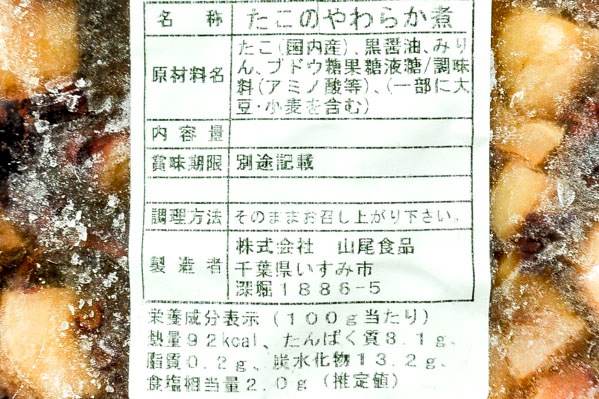 名称 たこのやわらか煮
原材料名 たこ(国内産)、黒醤油、みり
ん、ブドウ糖果糖液糖/調味
料(アミノ酸等)、(一部に大
豆・小麦を含む)
内容量
賞味期限 別途記載
調理方法 そのままお召し上がり下さい。
製造者 株式会社 山尾食品
千葉県いすみ市
深堀1886-5
栄養成分表示(100g当たり)
熱量92kcal、たんぱく質8.1g、
脂質0.2g、炭水化物13.2g、
食塩相当量2.0g(推定値)